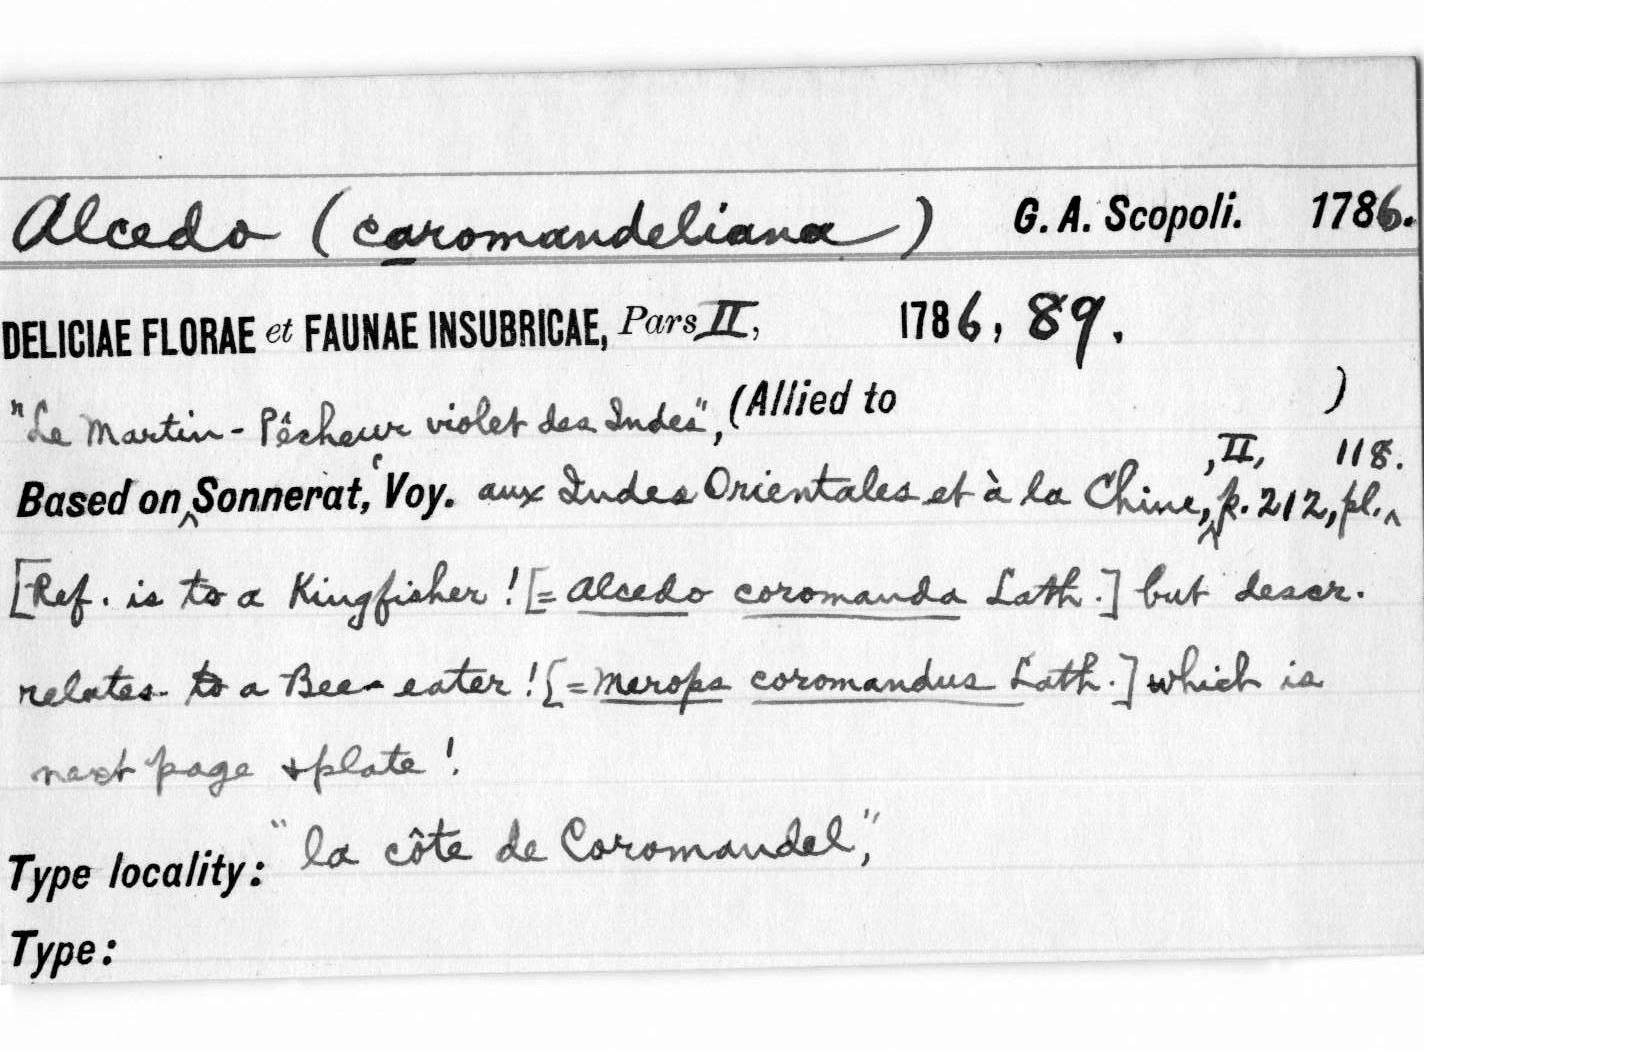 Alcedo (caromandeliana) G. A. Scopoli. 1786.
DELICIAE FLORAE et FAUNAE INSUBRICAE, Pars II, 1786, 89.
"Le Martin-Pêcheur violet des Indes", (Allied to )
Based on Sonnerat, Voy. aux Indes Orientales et à la Chine, II, p. 212, pl. 118.
[Ref. is to a Kingfisher! [= Alcedo coromanda Lath.] but descr.
relates to a Bee-eater! [= Merops coromandus Lath.] which is
next page & plate!
Type locality: "la côte de Coromandel",
Type: